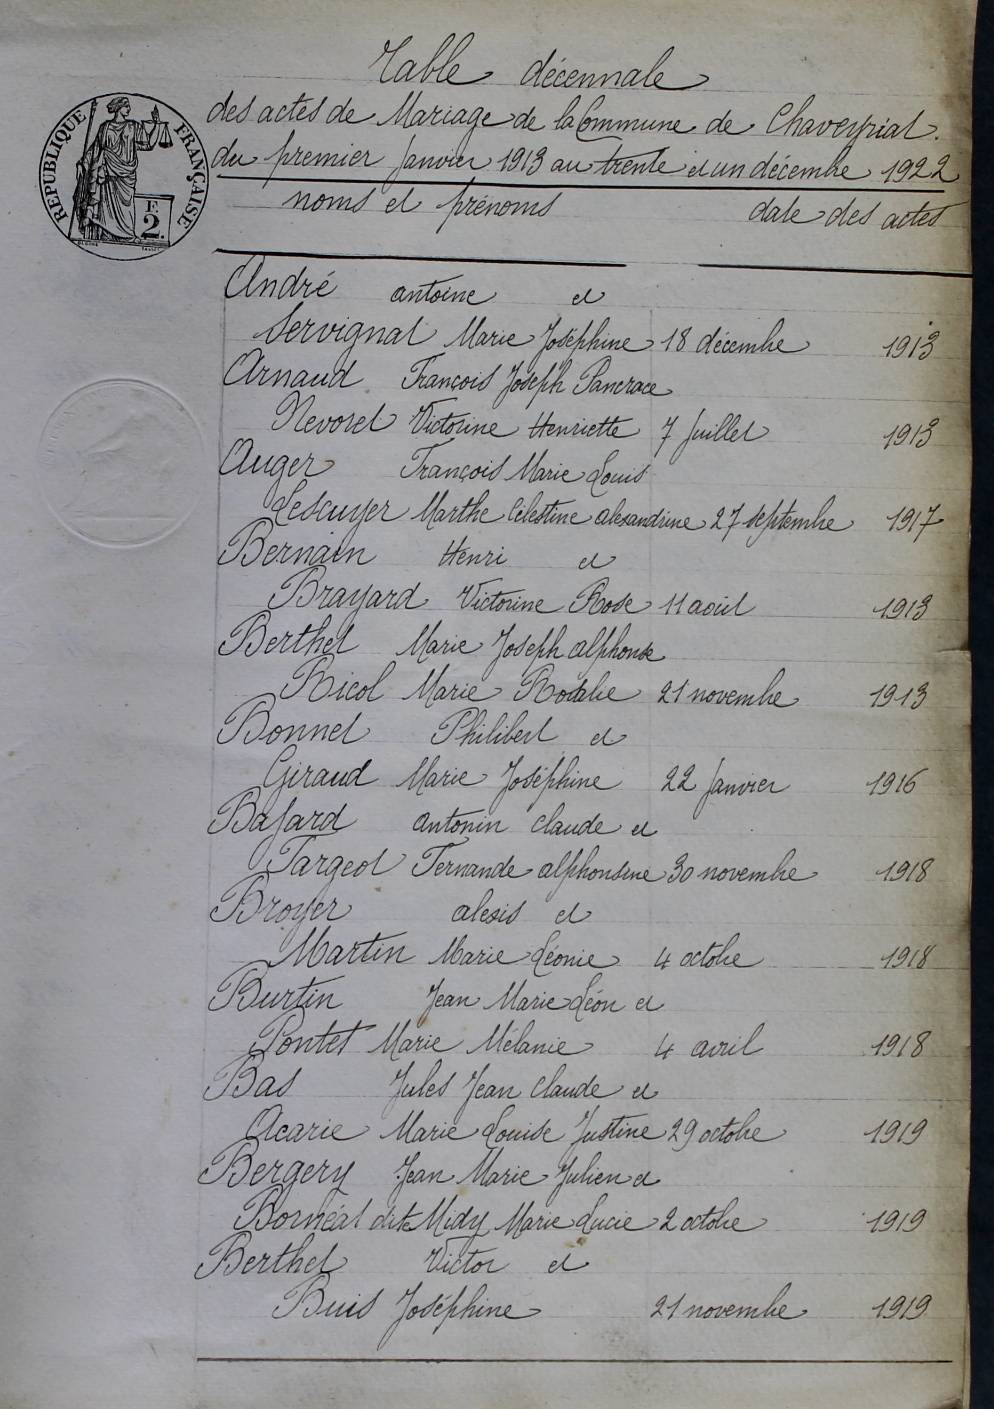 Table décennale
des actes de Mariage de la Commune de Chaveyriat.
du premier Janvier 1913 au trente et un décembre 1922
RÉPUBLIQUE FRANÇAISE
F.
2.
noms et prénoms date des actes
André antoine et
Servignat Marie Joséphine 18 décembre 1913
Arnaud François Joseph Pancrace
Nevoret Victorine Henriette 7 Juillet 1913
Auger François Marie Louis
Lescuyer Marthe Célestine alexandrine 27 septembre 1917
Bernain Henri et
Brayard Victorine Rose 11 août 1913
Berthet Marie Joseph alphonse
Ricol Marie 21 novembre 1913
Bonnet Philibert et
Giraud Marie Joséphine 22 Janvier 1916
Bajard antonin claude et
Targeot Fernande alphonsine 30 novembre 1918
Broyer alexis et
Martin Marie Léonie 4 octobre 1918
Burtin Jean Marie Léon et
Pontet Marie Mélanie 4 avril 1918
Bas Jules Jean claude et
Acarie Marie Louise Justine 29 octobre 1919
Bergery Jean Marie Julien et
Bornéat dite Midy Marie Lucie 2 octobre 1919
Berthet Victor et
Buis Joséphine 21 novembre 1919